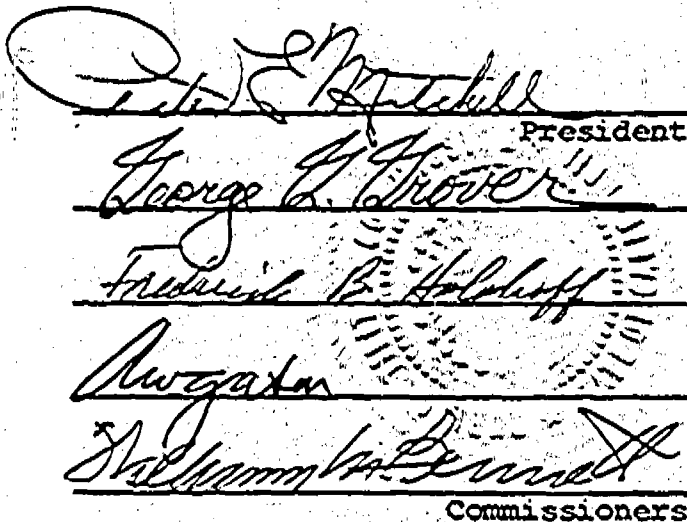 Peter E. Mitchell
President
George G. Grover
Fredrick B. Holoboff
William M. Bennett
Commissioners